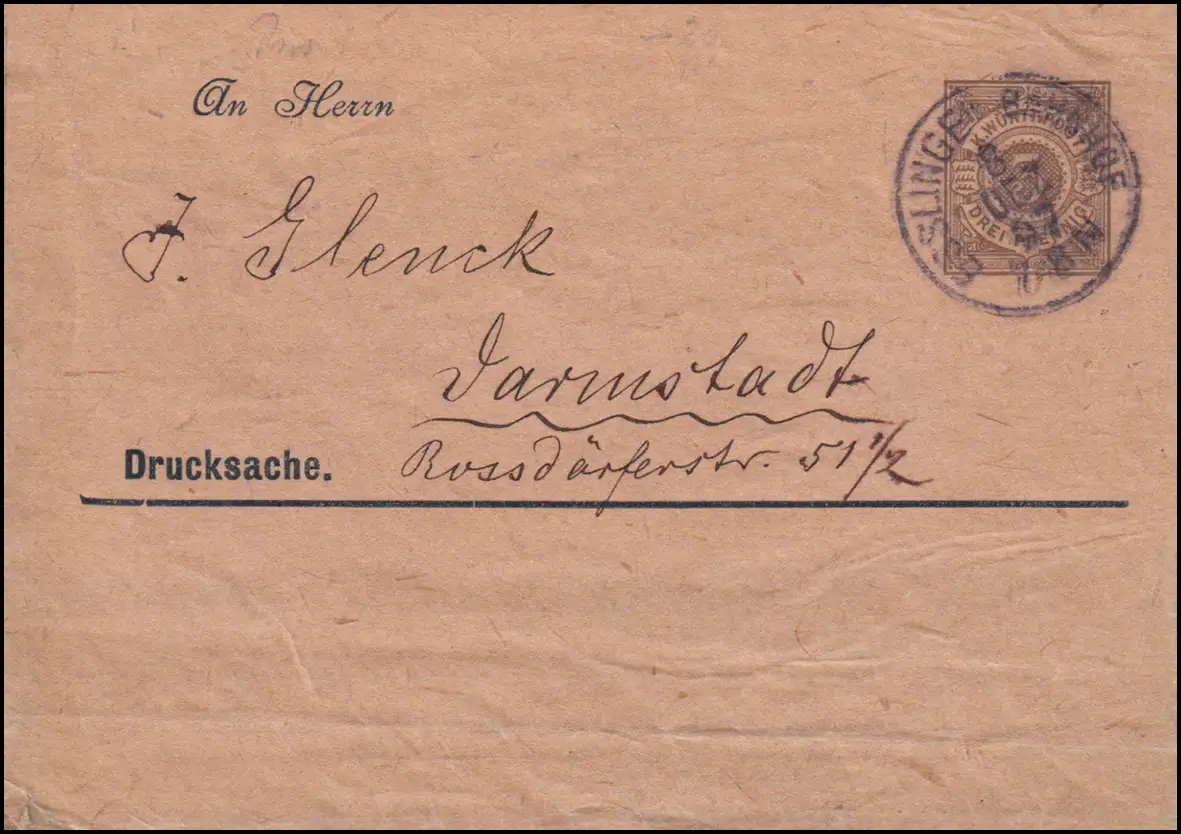 An Herrn
K. WÜRTT. POST
3
DREI PFENNIG
ESSLINGEN BAHNHOF
J. Glenck
Darmstadt
Drucksache. Rossdörferstr. 51 1/2